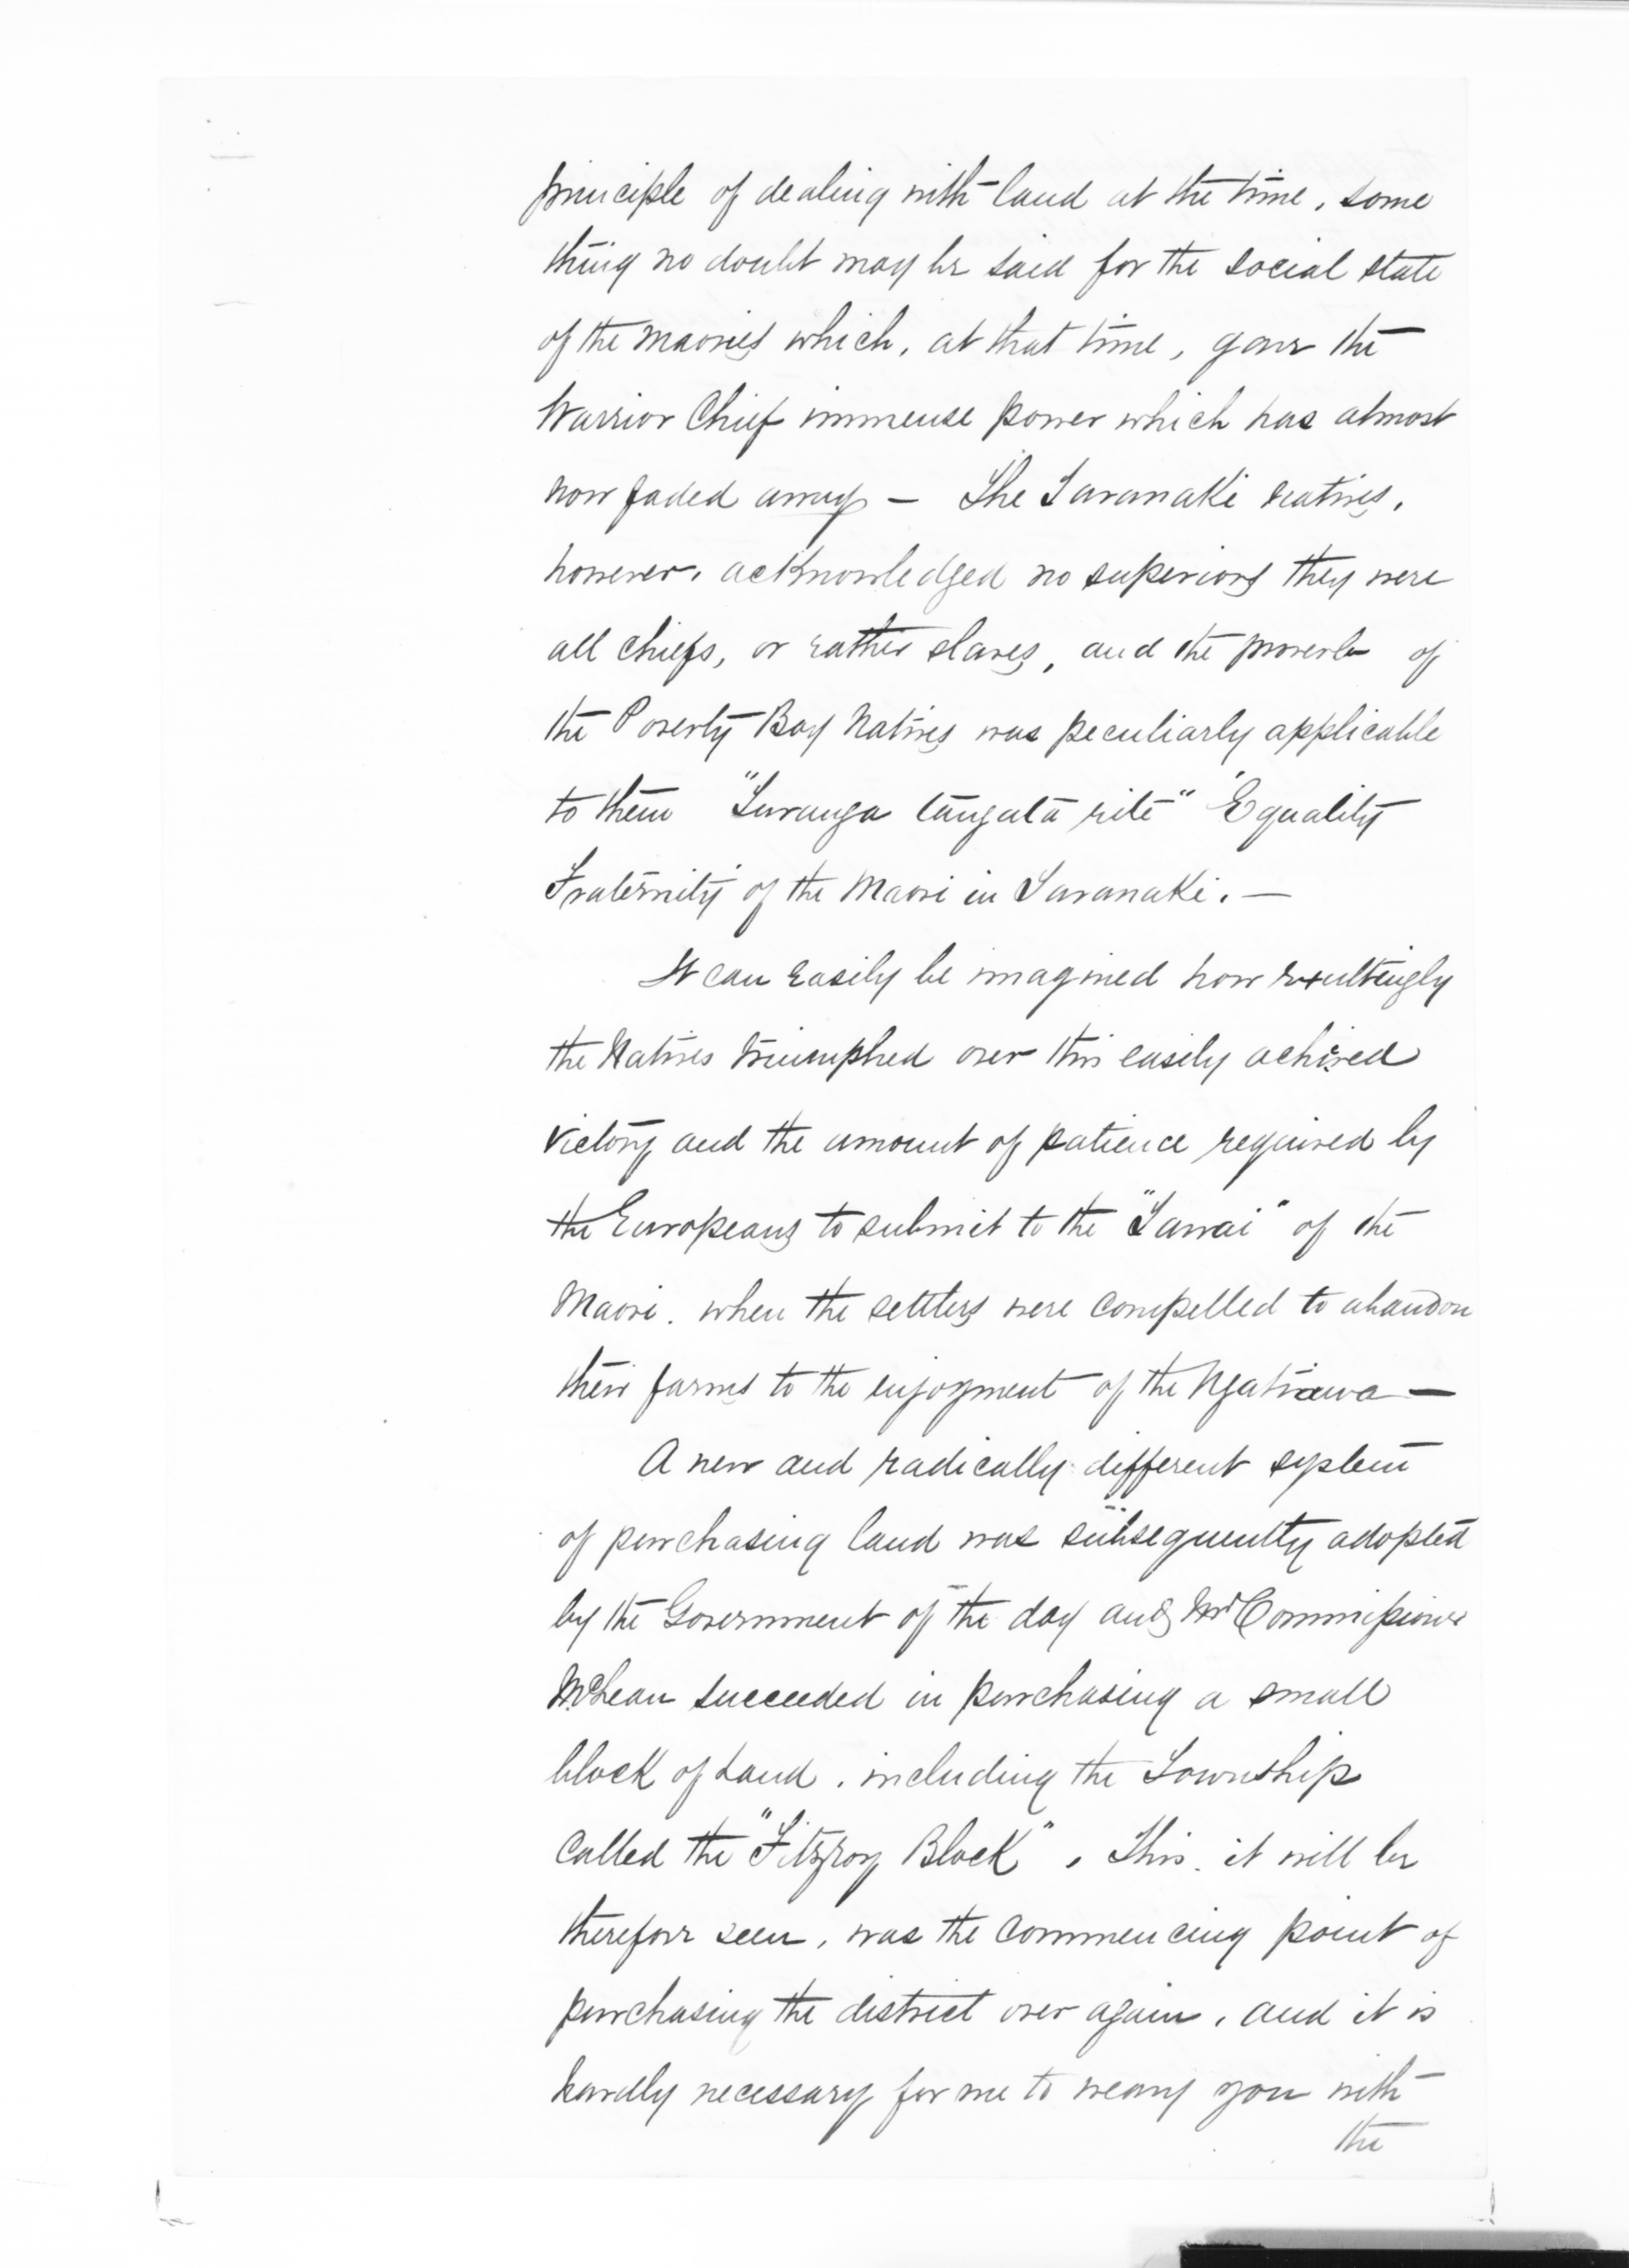 principle of dealing with land at the time, some
thing no doubt may be said for the social state
of the Maories which, at that time, gave the
Warrior Chief immense power which has almost
now faded away — The Taranaki natives,
however, acknowledged no superiors they were
all chiefs, or rather slaves, and the proverb of
the Poverty Bay Natives was peculiarly applicable
to them "Turanga tangata rite" "Equality
Fraternity" of the Maori in Taranaki. —
It can easily be imagined how exultingly
the Natives triumphed over this easily achived
victory and the amount of patience required by
the Europeans to submit to the "Tawai" of the
Maori. when the settlers were compelled to abandon
their farms to the enjoyment of the Ngatiawa —
A new and radically different system
of purchasing land was subsequently adopted
by the Government of the day and Mr Commissioner
McLean succeeded in purchasing a small
block of Land, including the Township
called the "Fitzroy Block", This, it will be
therefore seen, was the commencing point of
purchasing the district over again, and it is
hardly necessary for me to weary you with
the